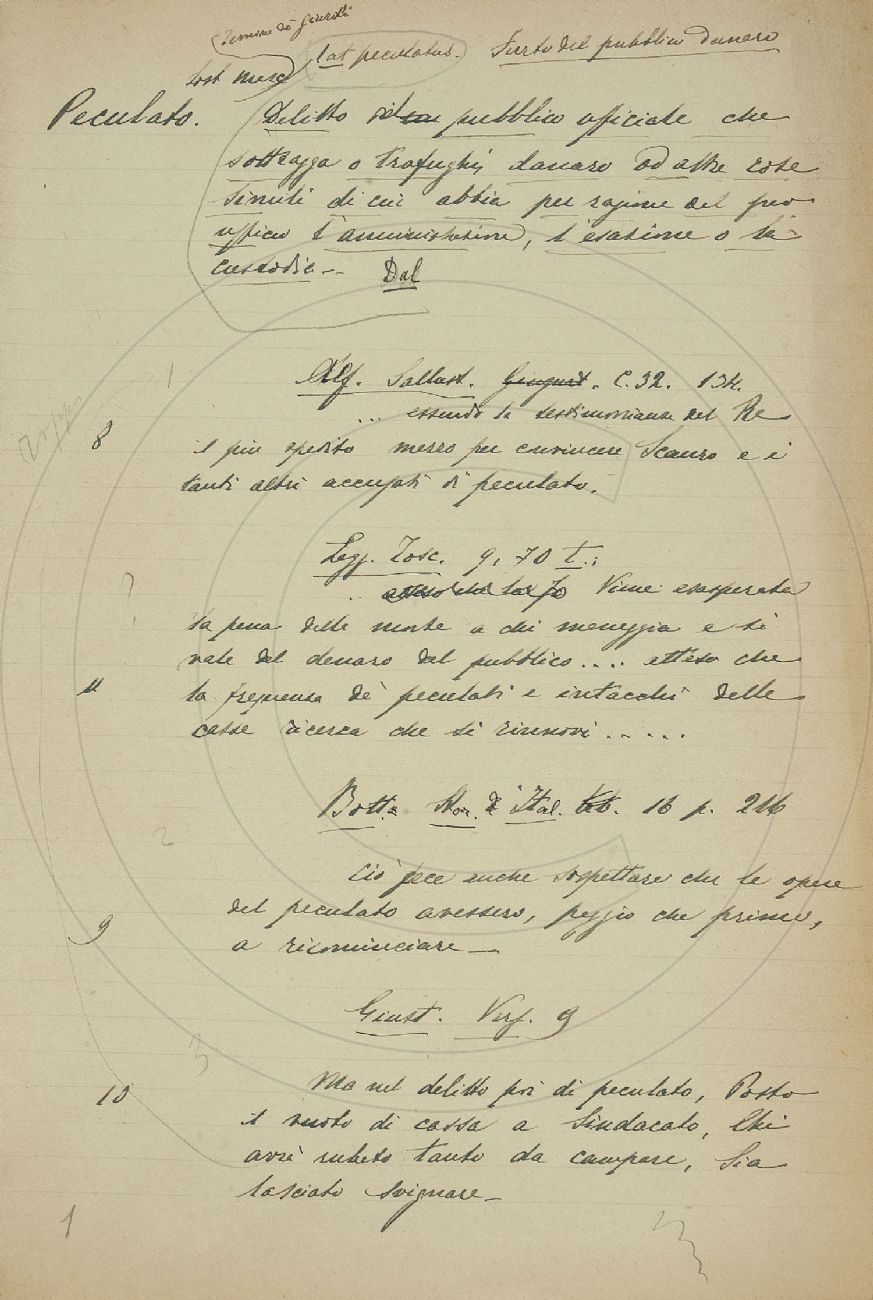 Termine de' Giuristi
sost masc lat peculatus. Furto del pubblico danaro
Peculato. Delitto del pubblico ufficiale che
sottragga o trafughi danaro od altre cose
simili di cui abbia per ragione del pro
ufficio l'amministrazione, l'esazione o la
custodia - Dal
Alf. Sallust. Giugurt. C. 32. 134.
... essendo la testimonianza del Re
il più spedito mezzo per convincere Scauro e i
tanti altri accusati di peculato.
Legg. Tosc. 9, 70 t.:
.. Viene esasperata
la pena della morte a chi maneggia e si
vale del denaro del pubblico.... atteso che
la frequenza de' peculati e intacchi delle
casse ricerca che si rinnovi.....
Bott. Stor. d'Ital. 16 p. 216
Ciò fece anche sospettare che le opere
del peculato avessero, peggio che prima,
a ricominciare -
Giust. Vers. 9
Ma nel delitto poi di peculato, Posto
il vuoto di cassa a Sindacato, Chi
avrà rubato tanto da campare, Sia
lasciato svignare -
8
11
9
10
1
2
3
1